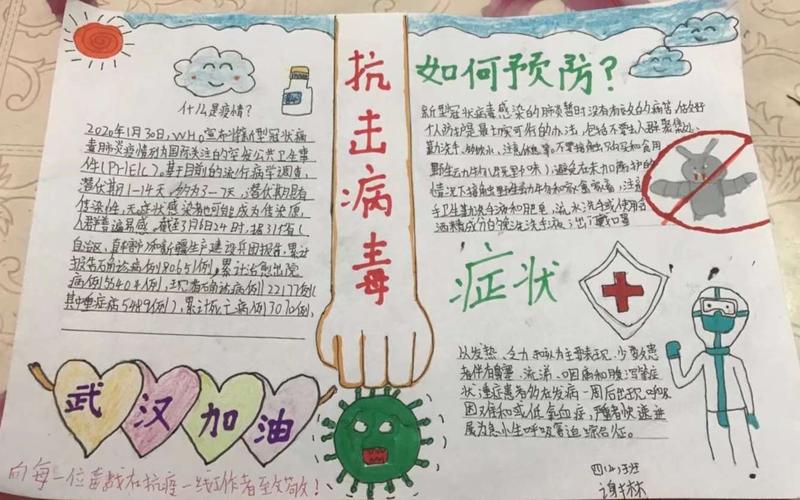 什么是疫情?
2020年1月30日,WHO宣布将新型冠状病
毒肺炎疫情列为国际关注的突发公共卫生事
件(PHEIC)。基于目前的流行病学调查,
潜伏期1-14天,多为3-7天,潜伏期具有
传染性,无症状感染者也可能成为传染源,
人群普遍易感。截至3月6日24时,据31个省(
自治区、直辖市)和新疆生产建设兵团报告,累计
报告确诊病例80651例,累计治愈出院
病例55404例,现有确诊病例22177例(
其中重症病5489例),累计死亡病例3070例,
武汉加油
向每一位奋战在抗疫一线工作者至敬!
抗击病毒
如何预防?
新型冠状病毒感染的肺炎暂时没有
个人防护是最
勤洗手,多饮水,注意休息等。不要接触
野生动物(野味),避免在未加防护的
情况下接触野生动物和家禽家畜,注意
手卫生勤洗手液和肥皂,流水洗手或使用含
酒精成分的免洗洗手液;出门戴口罩
症状
以发热、乏力、干咳为主要表现,少数患
者伴有鼻塞、流涕、咽痛和腹泻等症
状,重症患者多在发病一周后出现呼吸
困难和或低氧血症,严重者快速进
展为急性呼吸窘迫综合征。
四(4)班
谢林